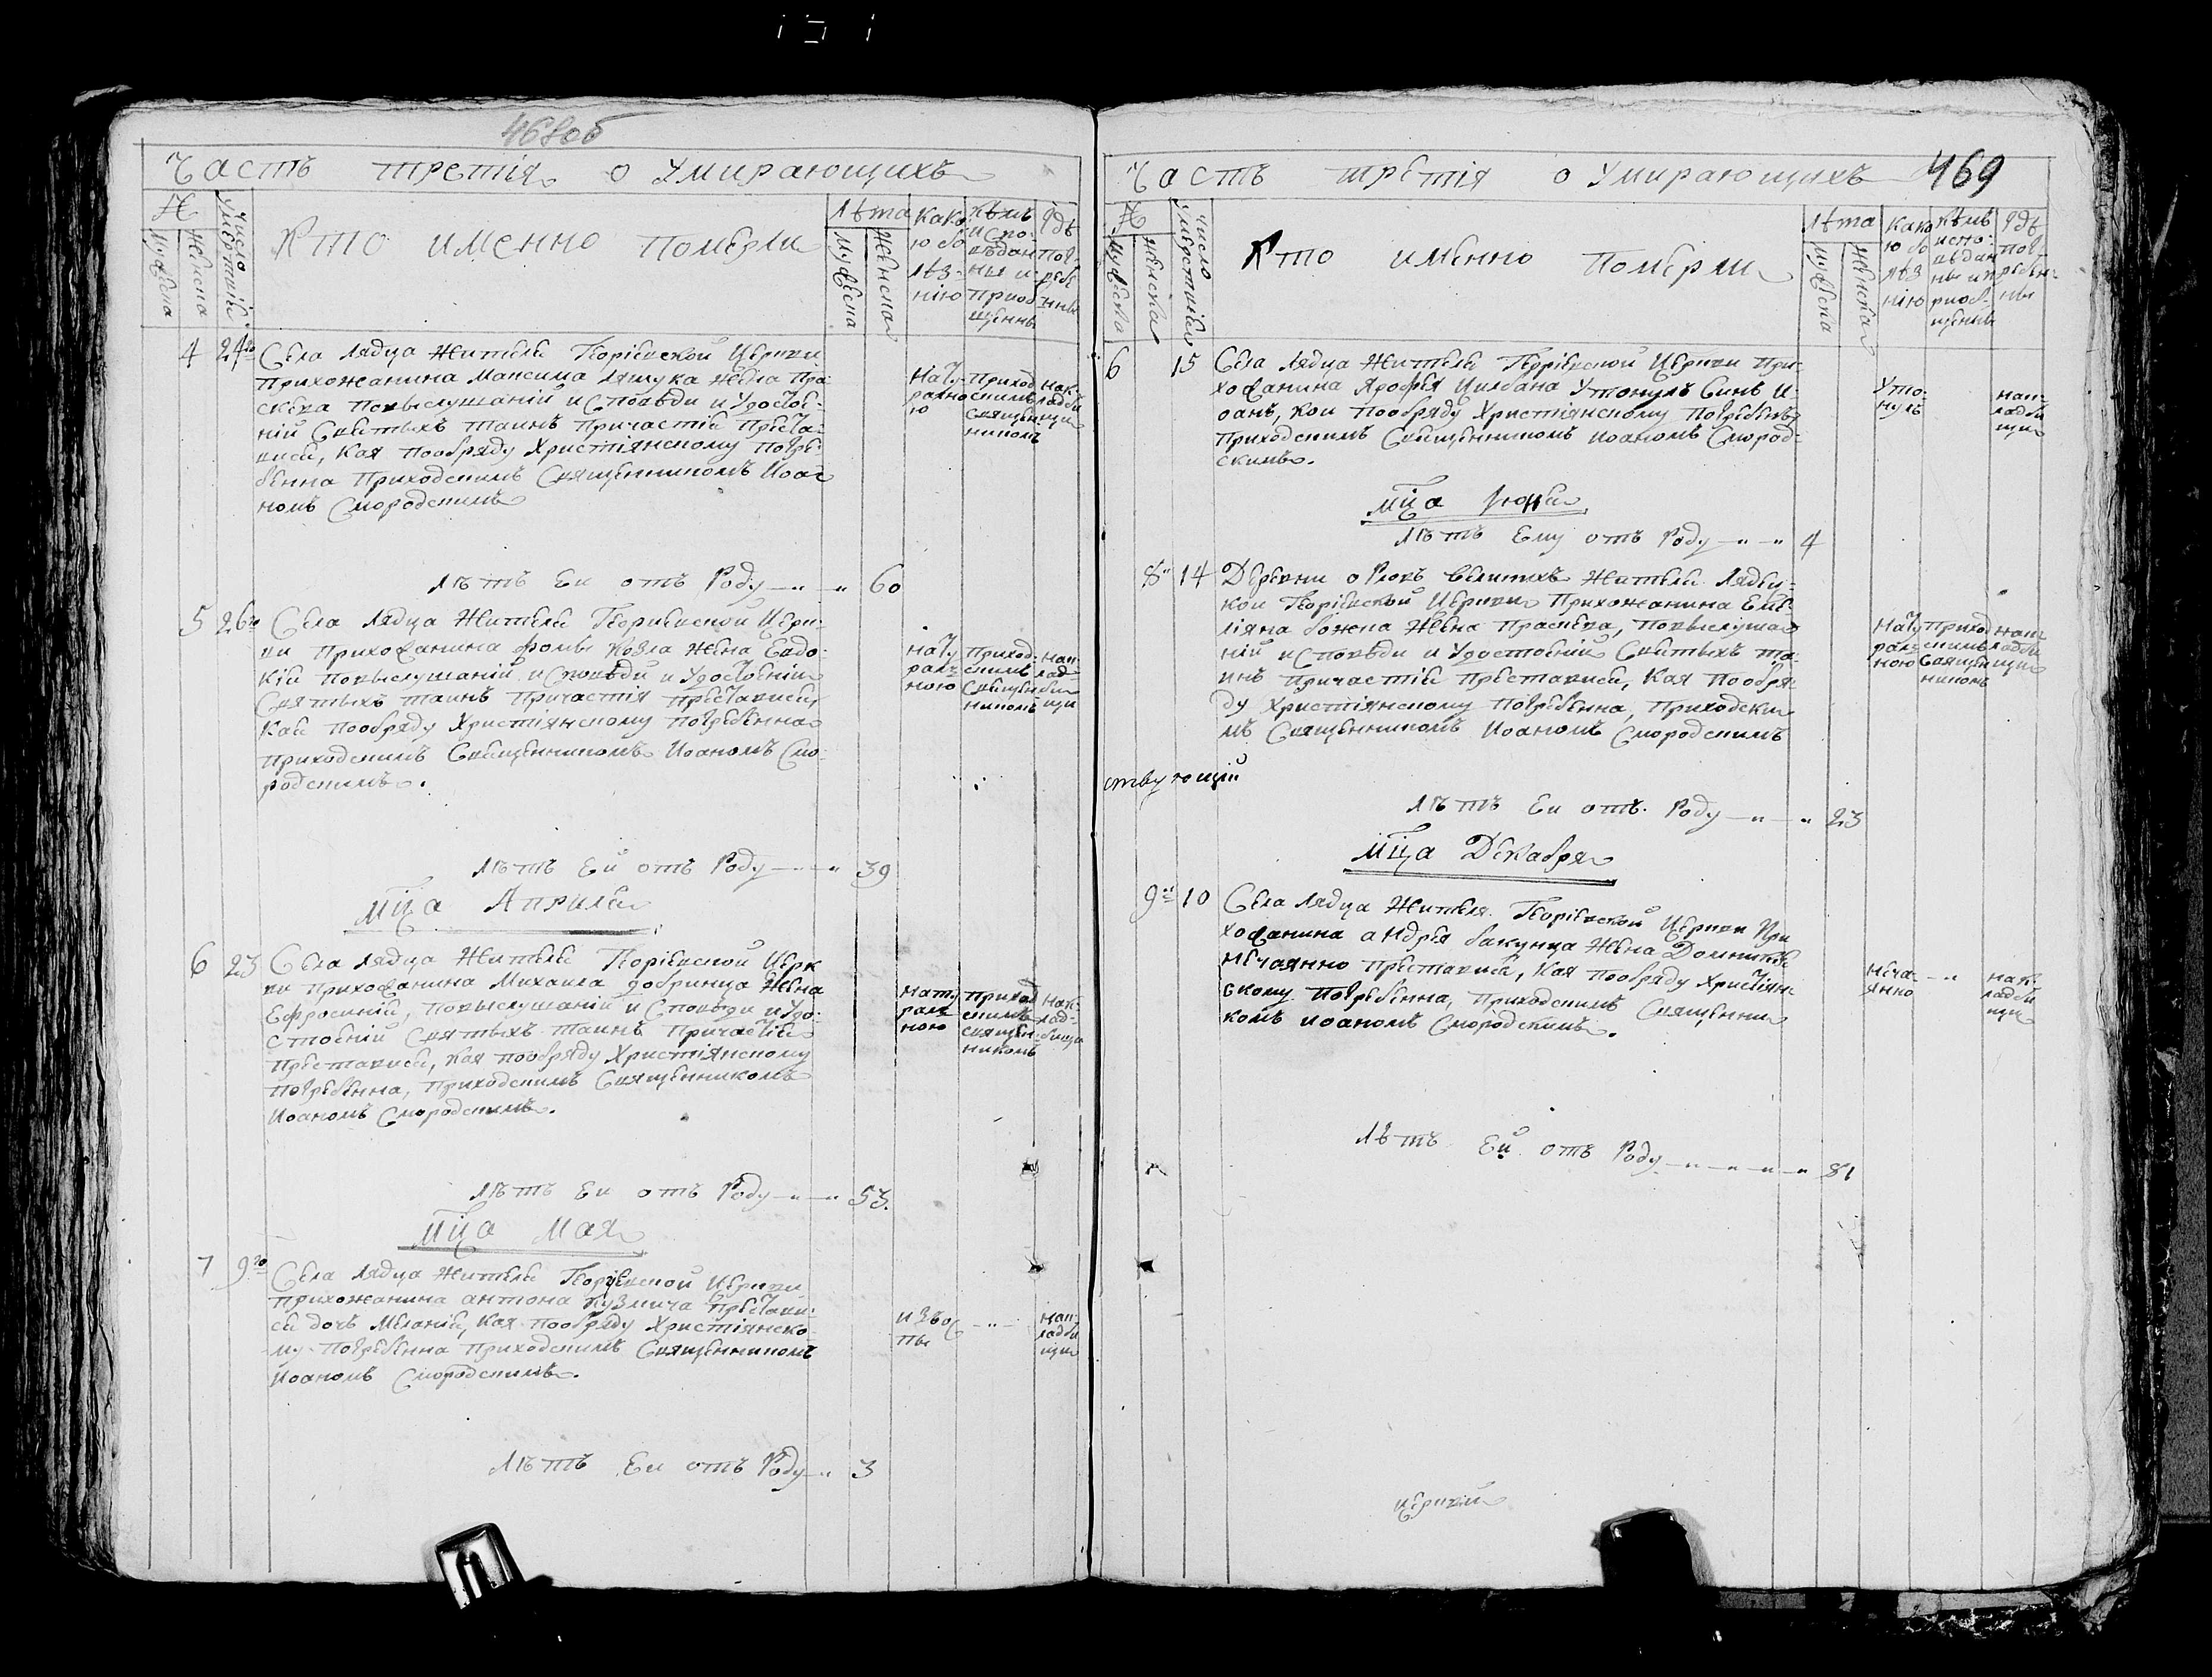 468об
Часть третія о Умирающихъ
№
мужеска
женска
Число
умертвія
Кто именно померли
лѣта
мужеска
женска
Како
ю бо
лѣз-
нію
Кѣмъ
испо-
вѣдан
ны и
приоб
щенны
Гдѣ
пог-
ребе
нны
4 24го Села Лядца Жителя Георгіевской Церкви
прихожанина Максима Ляшука жена Пра
скева повыслушаній исповѣди и Удостое-
ній Святыхъ таинъ Причастія Преста-
вися, Кая пообряду Христіянскому погре-
бенна Приходскимъ Священникомъ Иоан
номъ Смородскимъ
Нату
рално
ю
Приход
скимъ
Священ
никомъ
Нак-
ладби
щи
лѣтъ Еи отъ Роду 60
5 26го Села Лядца Жителя Георгиевской Церк-
ви Прихожанина Фомы Козла жена Евдо-
кія повыслушаній исповѣди и Удостоеній
Святыхъ таинъ Причастія преставися
Кая пообряду Христіянскому погребенна
приходскимъ Священникомъ Иоаномъ Смо-
родскимъ.
Нату
рал-
ною
Приход-
скимъ
Священ
никомъ
Нак-
лад-
би
щи
лѣтъ Ей отъ Роду 39
Мца Апрыля
6 23 Села Лядца Жителя Георгіевской Церк
ви прихожанина Михаила Добринца жена
Ефросинія, повыслушаній исповѣди и Удо-
стоеній Святыхъ таинъ Причастія
Преставися, Кая пообряду Христіянскому
погребенна, Приходскимъ Священникомъ
Иоаномъ Смородскимъ.
Нату
рал
ною
приход
скимъ
Священ
никомъ
Нак-
лад-
бищи
лѣтъ Еи отъ Роду 53.
Мца Мая
7 9го Села Лядца Жителя Георгіевской Церкви
прихожанина антона Кузмича Престави-
ся дочь Меланія, Кая пообряду Христіянско-
му погребенна Приходскимъ Священникомъ
Иоаномъ Смородскимъ.
Нак-
ладби
щи
лѣтъ Еи отъ Роду 3
Часть третія о Умирающихъ 469
№
мужеска
женска
Число
умертвія
Кто именно Померли
лѣта
мужеска
женска
Како
ю бо
лѣз
нію
Кѣмъ
испо-
вѣдан
ны и п
риоб-
щенны
Гдѣ
пог-
ребен-
ны
6 15 Села Лядца Жителя Георгіевской Церкви При-
хожанина Ярофея Цилбана Утонулъ Синъ И-
оанъ, кои пообряду Христіянскому погребенъ
Приходскимъ Священникомъ Иоаномъ Смород-
скимъ.
Уто-
нулъ
нак-
ладби
щи
Мца Іюня
лѣтъ Ему отъ Роду 4
8 14 Деревни Великихъ Жителя Лядец-
кои Георгіевской Церкви Прихожанина Еме-
ліяна Божена жена Праскева, повыслуша
ній исповѣди и Удостоеній Святыхъ та-
инъ причастія преставися, Кая пообря-
ду Христіянскому погребенна, Приходски
мъ Священникомъ Иоаномъ Смородскимъ
Нату
рал-
ною
Приход
скимъ
Священ
никомъ
нак-
ладби
щи
ствующій
лѣтъ Еи отъ Роду 23
Мца Декабря
9 10 Села Лядца Жителя Георгіевской Церкви При
хожанина Андрея Бакунца жена Домникія
нечаянно преставися, Кая пообряду Христіян-
скому погребенна, Приходскимъ Священни
комъ Иоаномъ Смородскимъ.
Неча-
янно
нак
ладби
щи
лѣтъ Ей отъ Роду 81
церкви